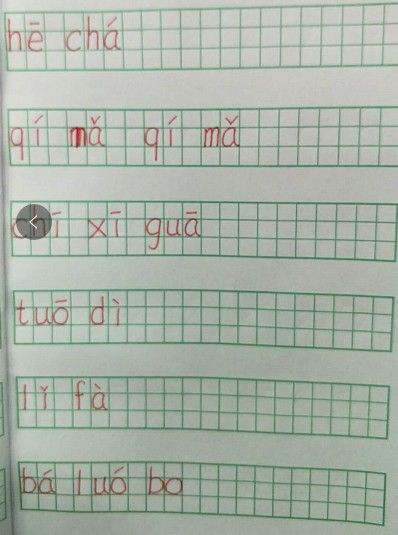 hē chá
qí mǎ qí mǎ
chī xī guā
tuō dì
lǐ fà
bá luó bo